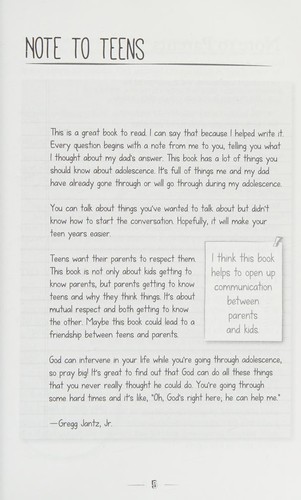 NOTE TO TEENS
This is a great book to read. I can say that because I helped write it.
Every question begins with a note from me to you, telling you what
I thought about my dad's answer. This book has a lot of things you
should know about adolescence. It's full of things me and my dad
have already gone through or will go through during my adolescence.
You can talk about things you've wanted to talk about but didn't
know how to start the conversation. Hopefully, it will make your
teen years easier.
Teens want their parents to respect them.
This book is not only about kids getting to
know parents, but parents getting to know
teens and why they think things. It's about
mutual respect and both getting to know
the other. Maybe this book could lead to a
friendship between teens and parents.
I think this book
helps to open up
communication
between
parents
and kids.
God can intervene in your life while you're going through adolescence,
so pray big! It's great to find out that God can do all these things
that you never really thought he could do. You're going through
some hard times and it's like, "Oh, God's right here; he can help me."
—Gregg Jantz, Jr.